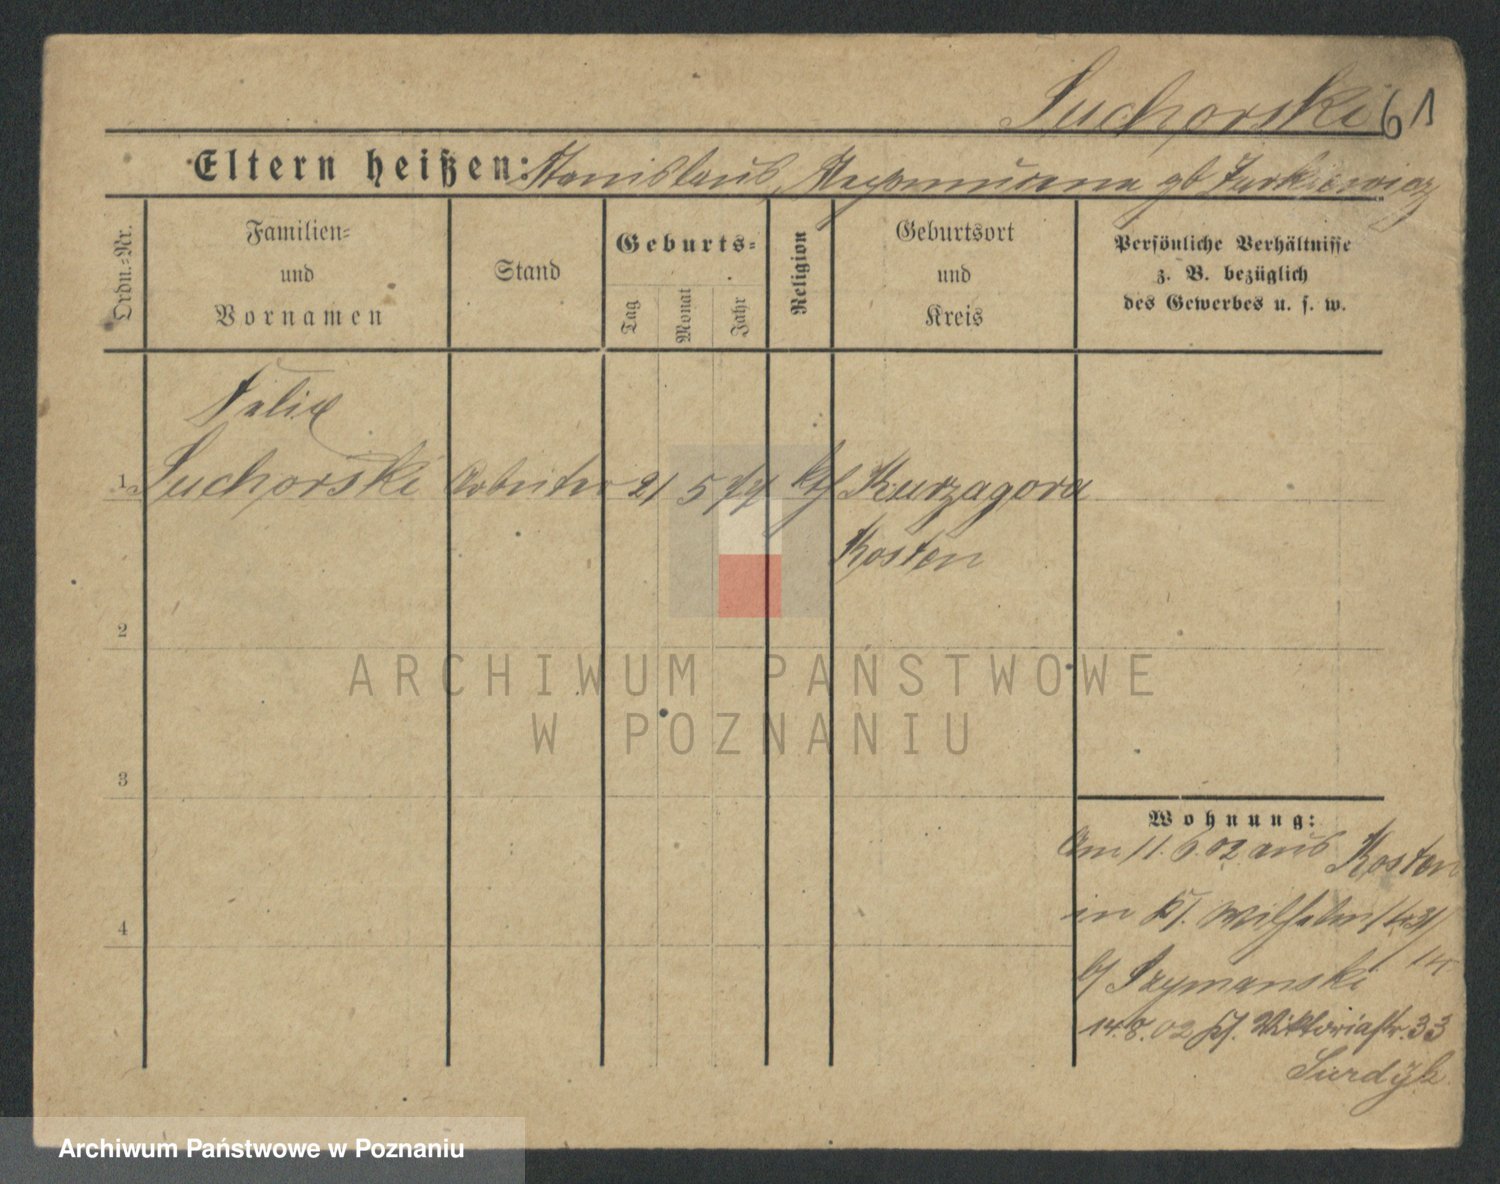 Suchorski 61
Eltern heißen: Stanislaus, Nepomucena gb Jurkiewicz
Ordn.-Nr.
Familien-
und
Vornamen
Stand
Geburts-
Tag
Monat
Jahr
Religion
Geburtsort
und
Kreis
Persönliche Verhältnisse
z. B. bezüglich
des Gewerbes u. s. w.
Felix
1 Suchorski Arbeiter 21 5 77 kth Kurzagora
Kosten
2
3
4
Wohnung:
Am 11.6.02 aus Kosten
in Wilhelm 31
14
b/ Szymanski
14.8.02 Viktoriastr. 33
Surdyk
ARCHIWUM PAŃSTWOWE
W POZNANIU
Archiwum Państwowe w Poznaniu